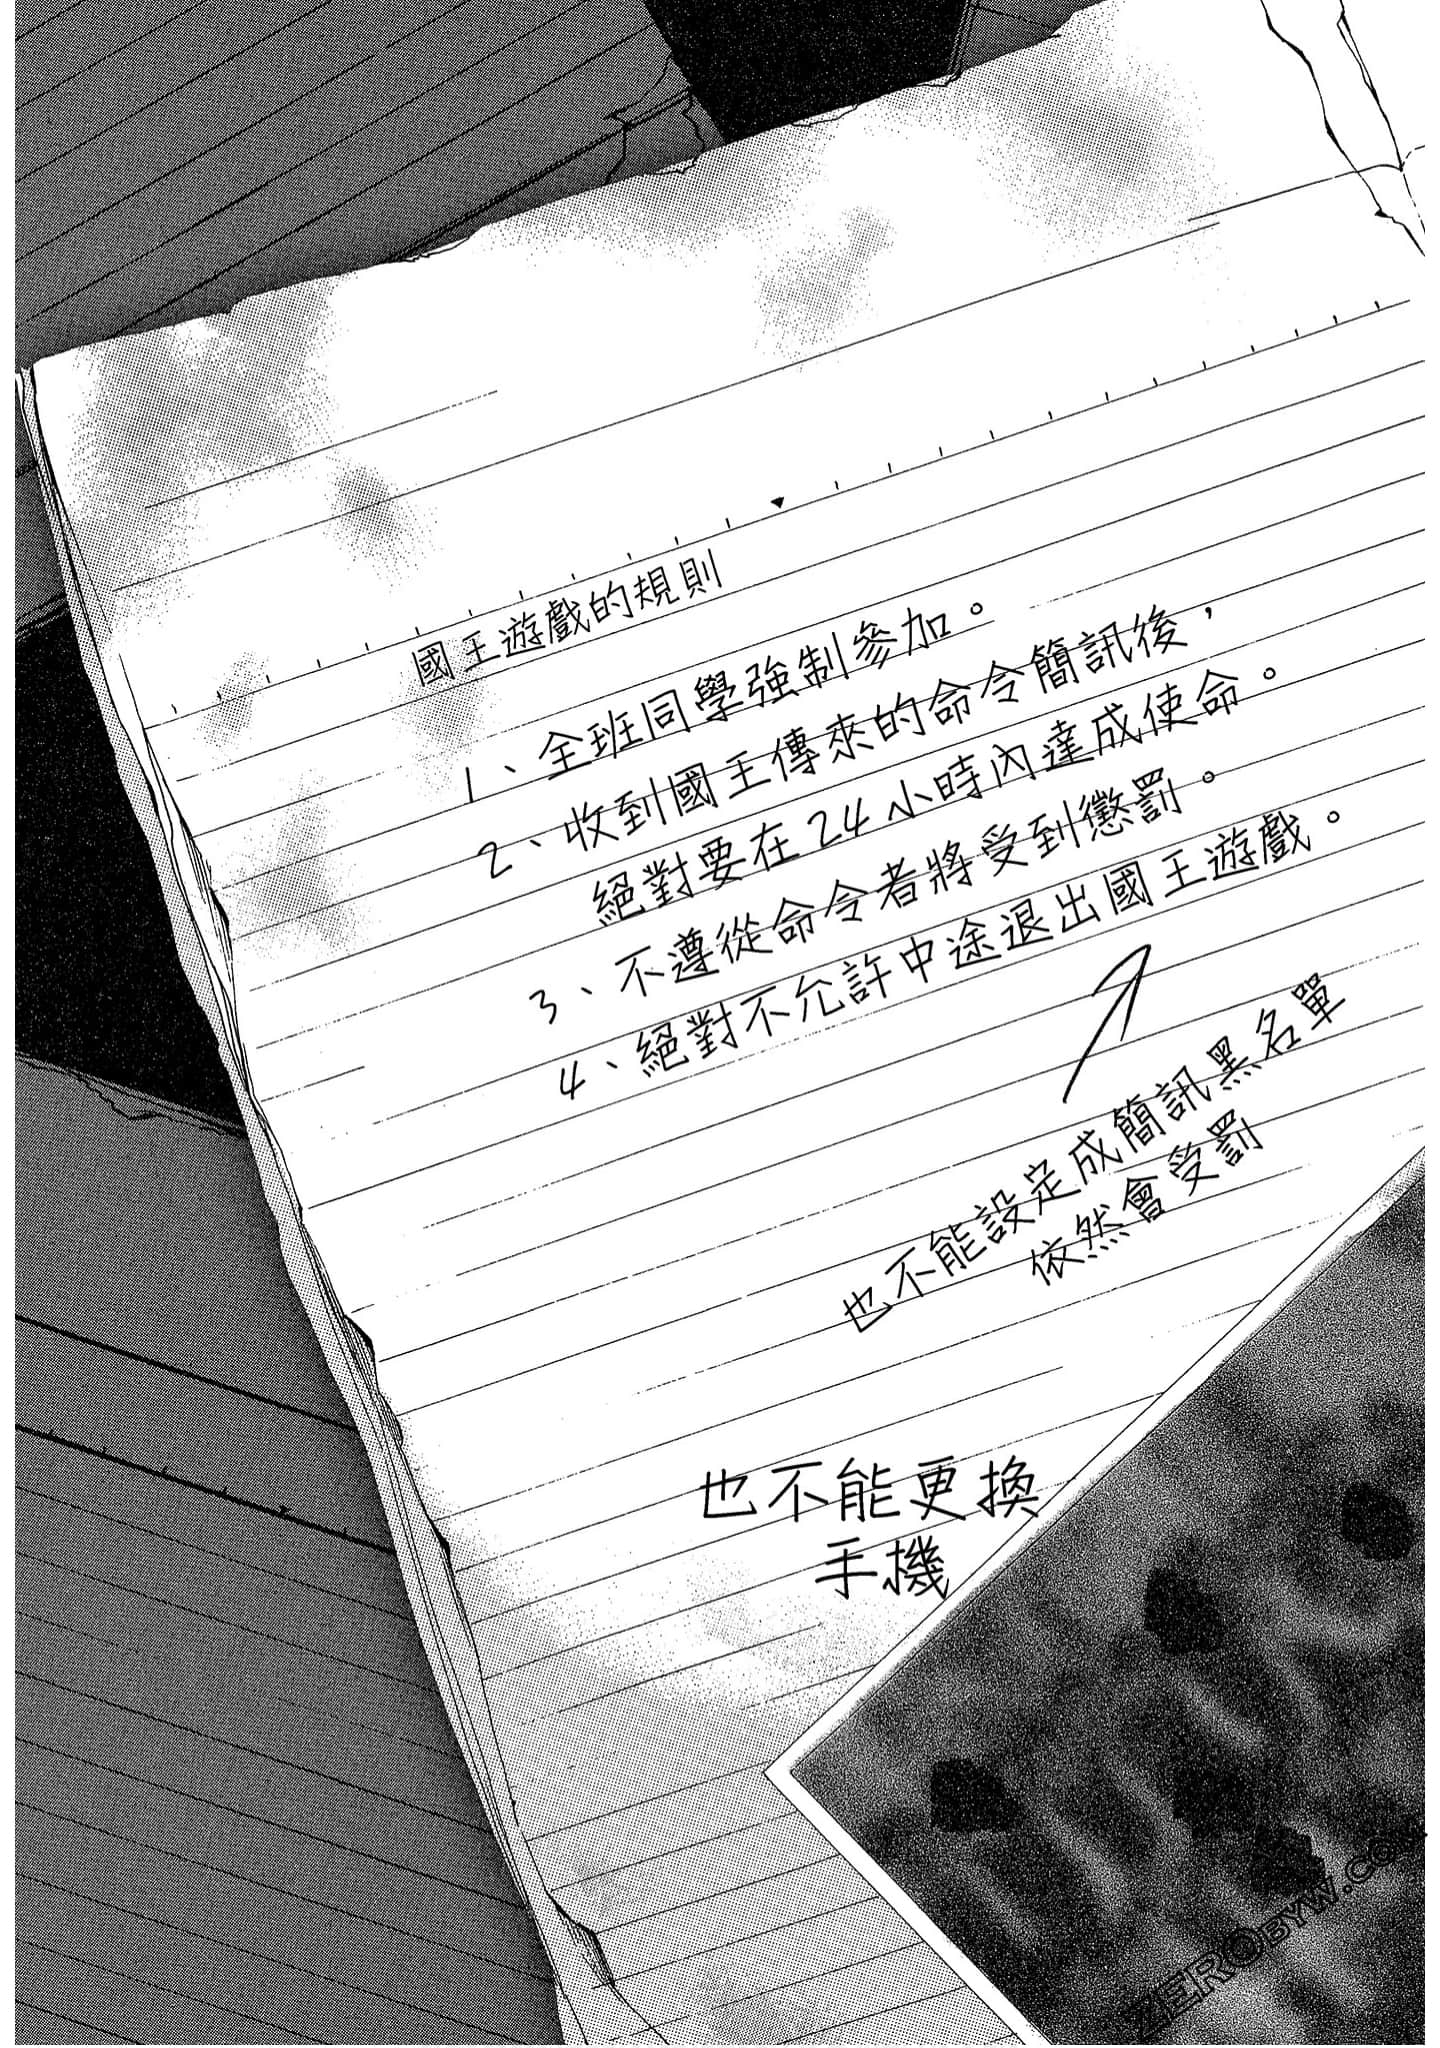 國王遊戲的規則
1、全班同學強制參加。
2、收到國王傳來的命令簡訊後，
絕對要在24小時內達成使命。
3、不遵從命令者將受到懲罰。
4、絕對不允許中途退出國王遊戲。
也不能設定成簡訊黑名單
依然會受罰
也不能更換
手機
ZEROBYW.COM